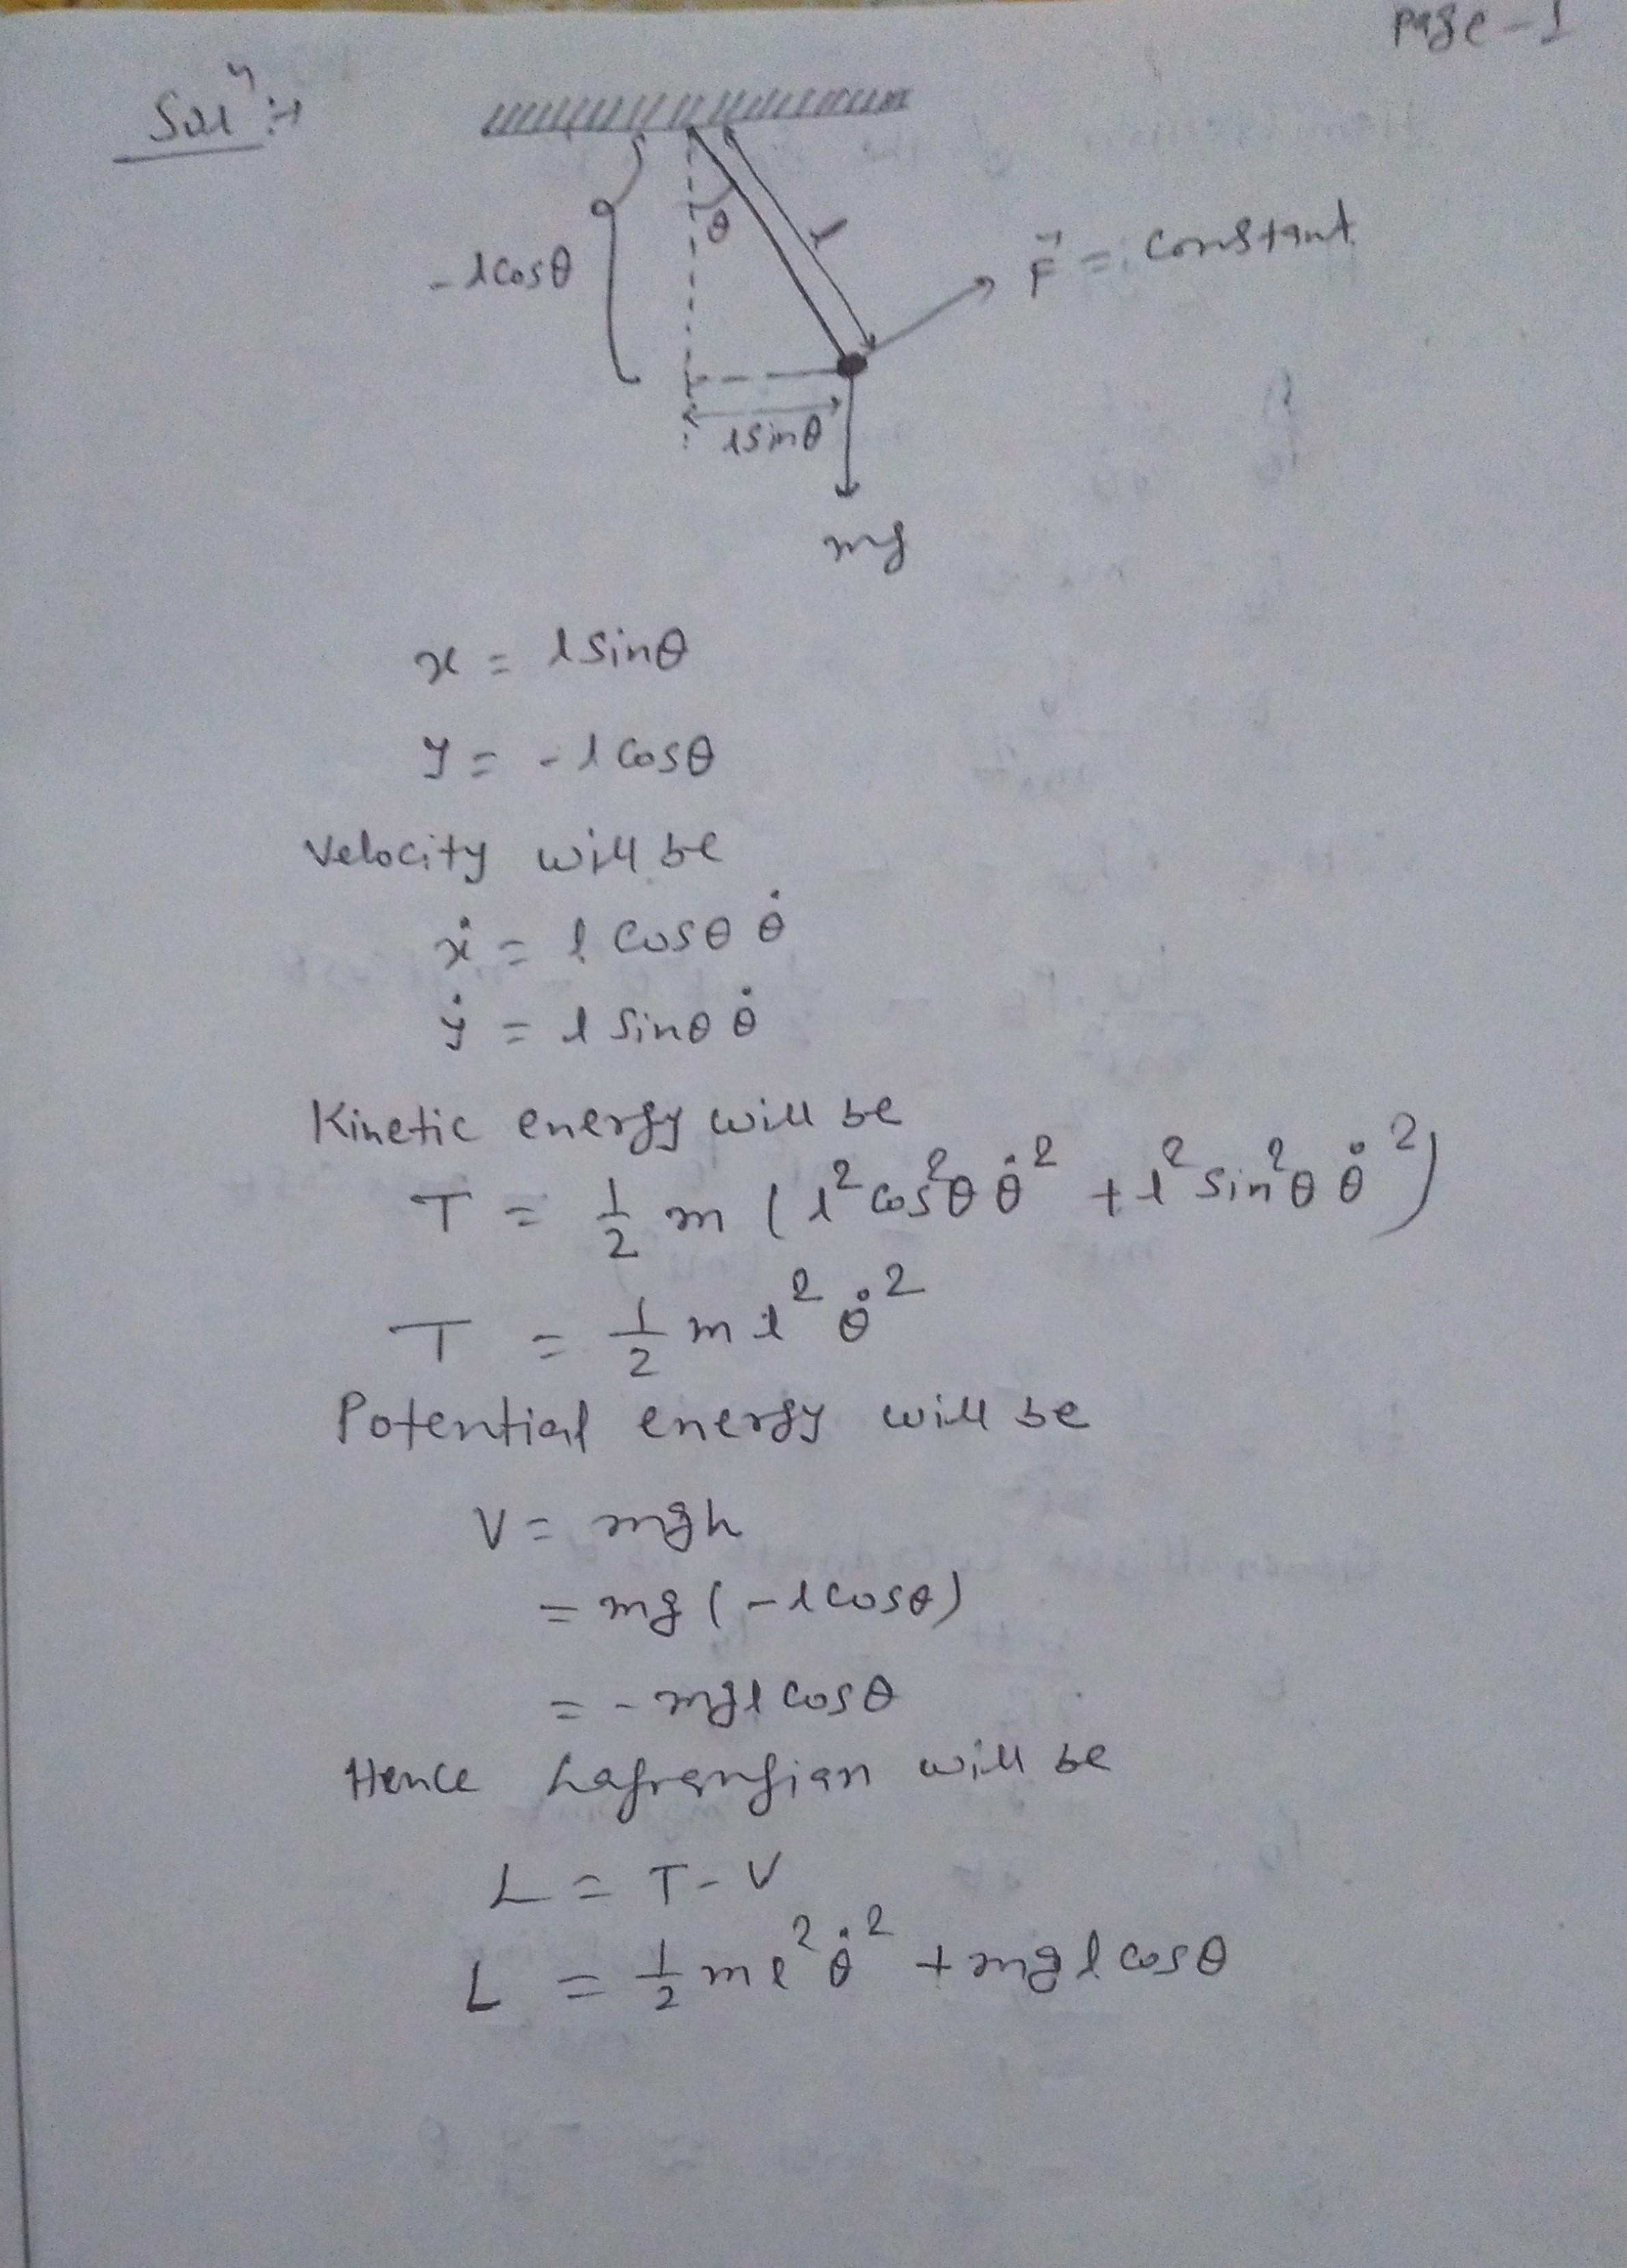 Page-1
Solⁿ:-
θ
l
-lcosθ
F⃗ = constant
lsinθ
mg
x = lsinθ
y = -lcosθ
Velocity will be
ẋ = l cosθ θ̇
ẏ = l sinθ θ̇
Kinetic energy will be
T = 1/2 m (l²cos²θ θ̇² + l²sin²θ θ̇²)
T = 1/2 m l² θ̇²
Potential energy will be
V = mgh
= mg(-lcosθ)
= -mgl cosθ
Hence Lagrangian will be
L = T-V
L = 1/2 ml²θ̇² + mgl cosθ